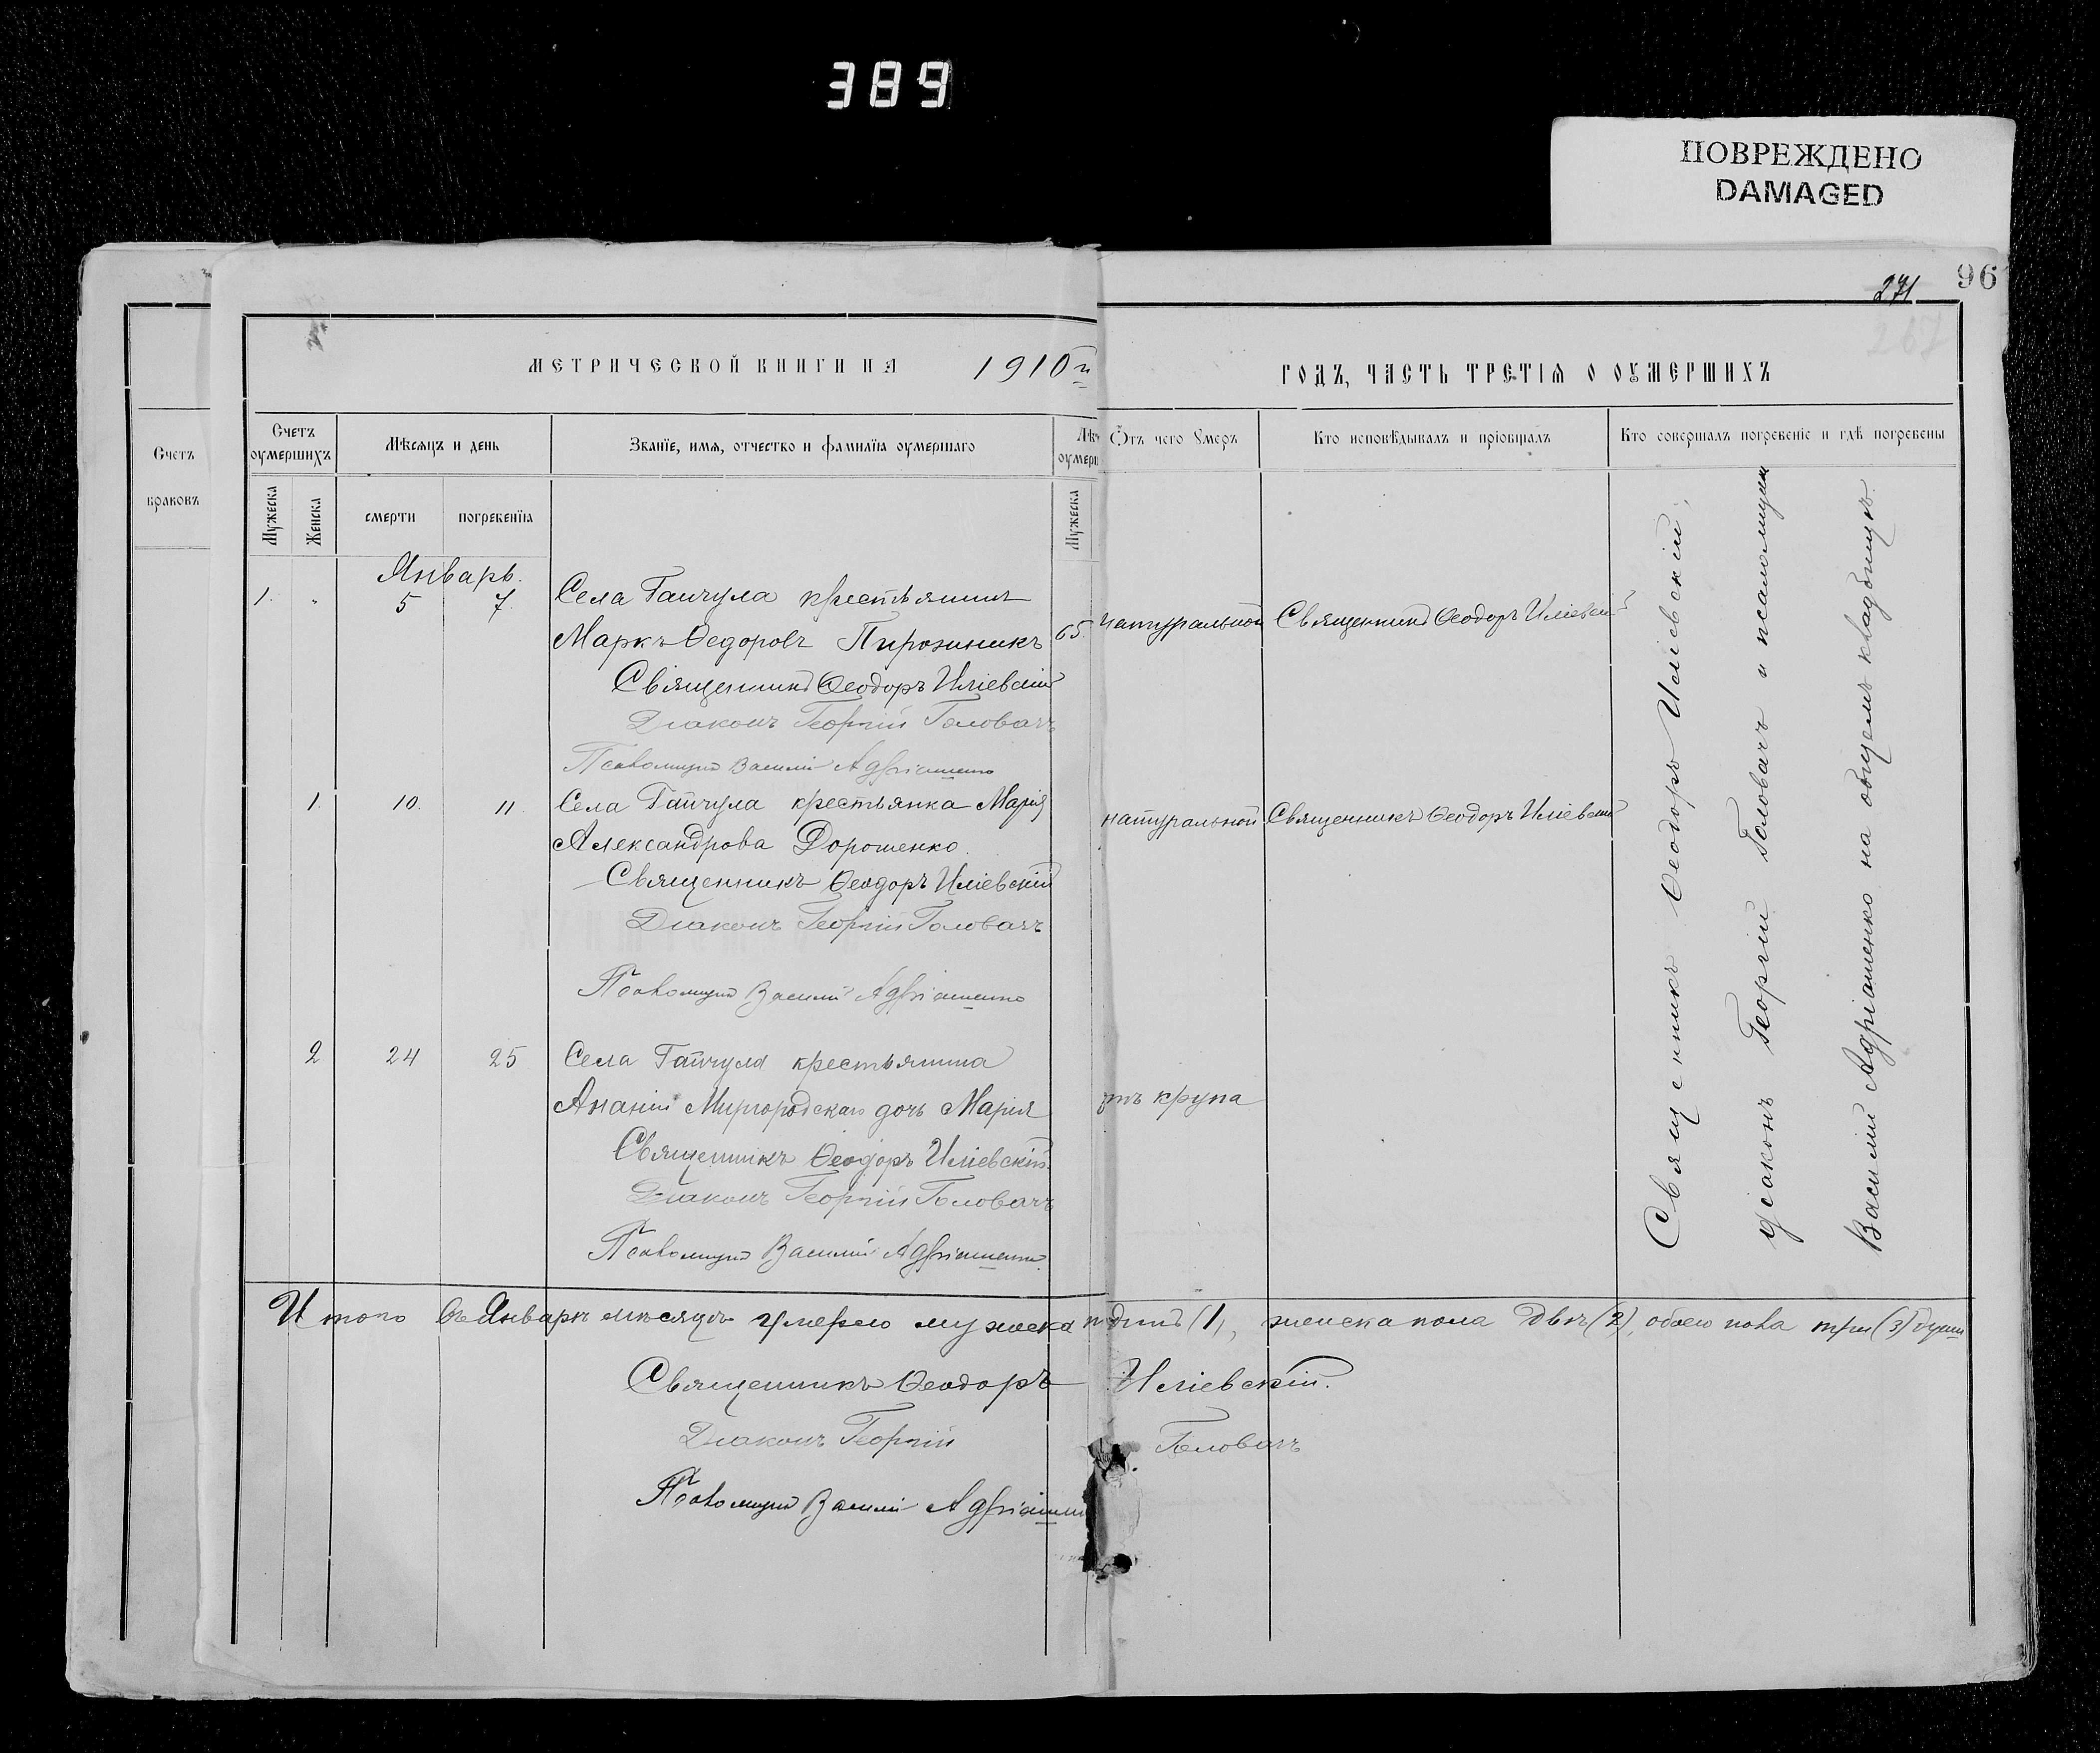 389
ПОВРЕЖДЕНО
DAMAGED
96
271
267
МЕТРИЧЕСКОЙ КНИГИ НА 1910й ГОДЪ, ЧАСТЬ ТРЕТІѦ О ОУМЕРШИХЪ
Счетъ браковъ
Счетъ оумершихъ
Мѣсяцъ и день
Званїе, имѧ, отчество и фамилїѧ оумершаго
Лѣт
оумерш
Отъ чего умеръ
Кто исповѣдывалъ и прїобщалъ
Кто совершалъ погребенїе и гдѣ погребены
Мужеска
Женска
смерти
погребенїѧ
Мужеска
Январь.
1. 5 7. Села Гайчула крестьянинъ
Маркъ Ѳедоровъ Пирожникъ 65. натуральной Священникъ Ѳеодоръ Иліевскій
Священникъ Ѳеодоръ Иліевскій
Діаконъ Георгій Головачъ
Псаломщикъ Василій Адріаненко
1. 10. 11. Села Гайчула крестьянка Марія натуральной Священникъ Ѳеодоръ Иліевскій
Александрова Дорошенко.
Священникъ Ѳеодоръ Иліевскій
Діаконъ Георгій Головачъ
Псаломщикъ Василій Адріаненко
2 24 25 Села Гайчула крестьянина
Ананіи Миргородскаго дочь Марія отъ крупа
Священникъ Ѳеодоръ Иліевскій.
Діаконъ Георгій Головачъ
Псаломщикъ Василій Адріаненко.
Священникъ Ѳеодоръ Иліевскій,
діаконъ Георгій Головачъ и псаломщикъ
Василій Адріаненко на общемъ кладбищѣ.
Итого въ Январѣ мѣсяцѣ умерло мужеска одинъ (1), женска пола двѣ (2), обоего пола три (3) души
Священникъ Ѳеодоръ Иліевскій.
Діаконъ Георгій Головачъ
Псаломщикъ Василій Адріаненко